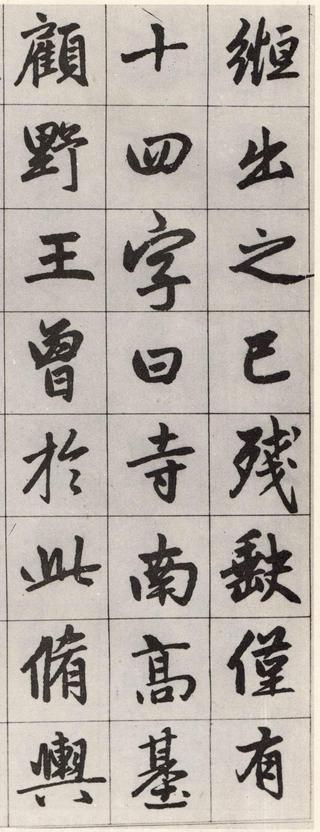 縆出之已殘缺僅有
十四字曰寺南高基
顧野王曾於此脩輿